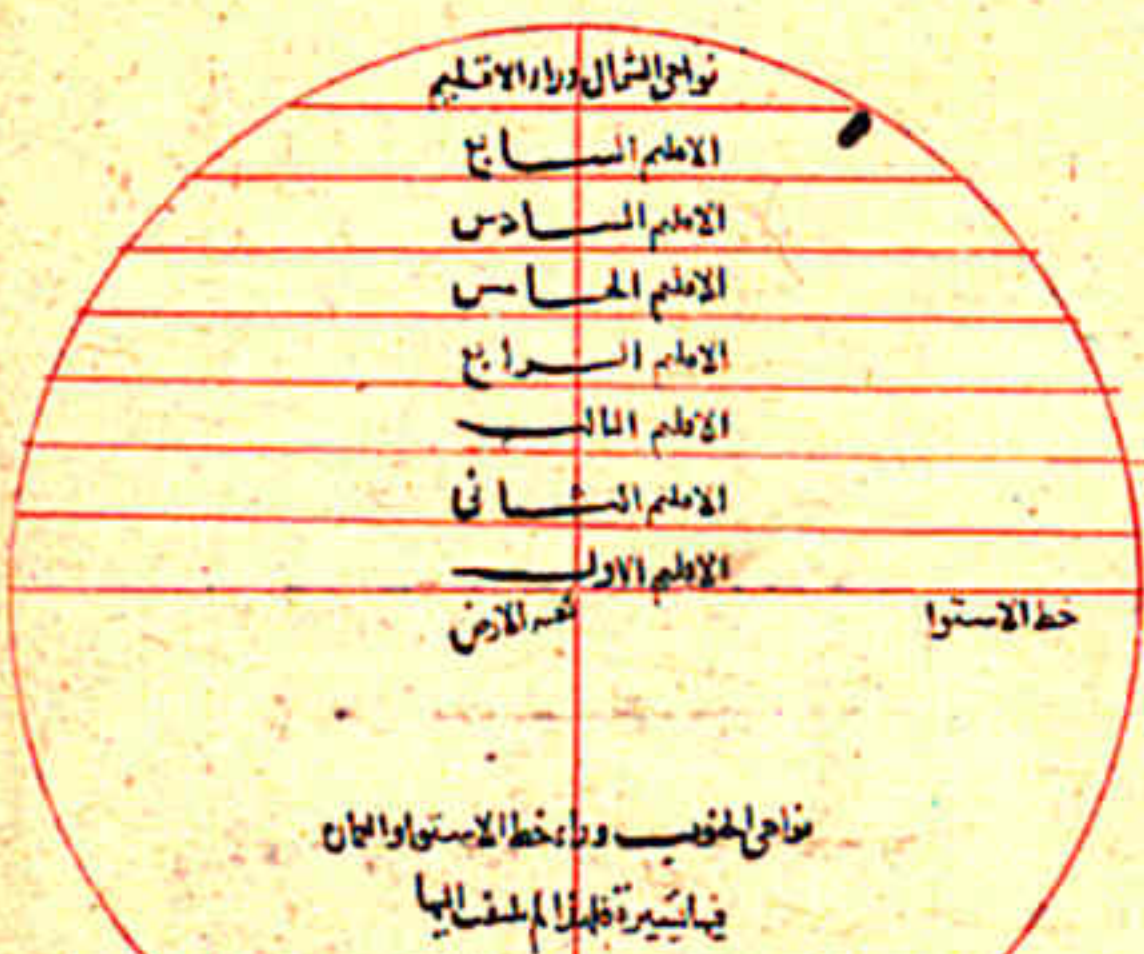 نواحى الشمال وراء الاقليم
الاقليم السابع
الاقليم السادس
الاقليم الخامس
الاقليم الرابع
الاقليم الثالث
الاقليم الثانى
الاقليم الاول
خط الاستوا
الارض
نواحى الجنوب وراء خط الاستواء
فيها يسيرة فلهذا لم يلتفت اليها